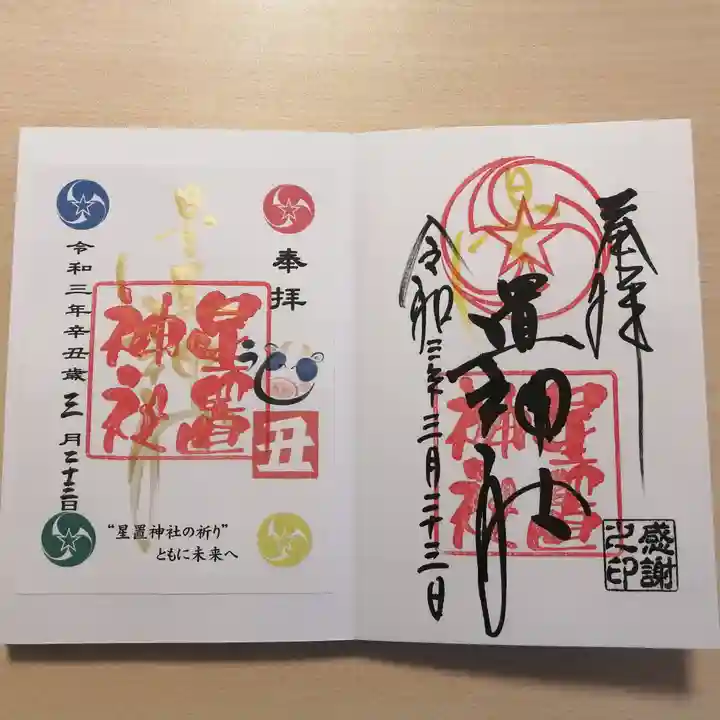 奉拝
置神社
星置
神社
令和三年三月二十二日
感謝
之印
奉拝
うし
丑
星置
神社
令和三年辛丑歳三月二十二日
“星置神社の祈り”
ともに未来へ